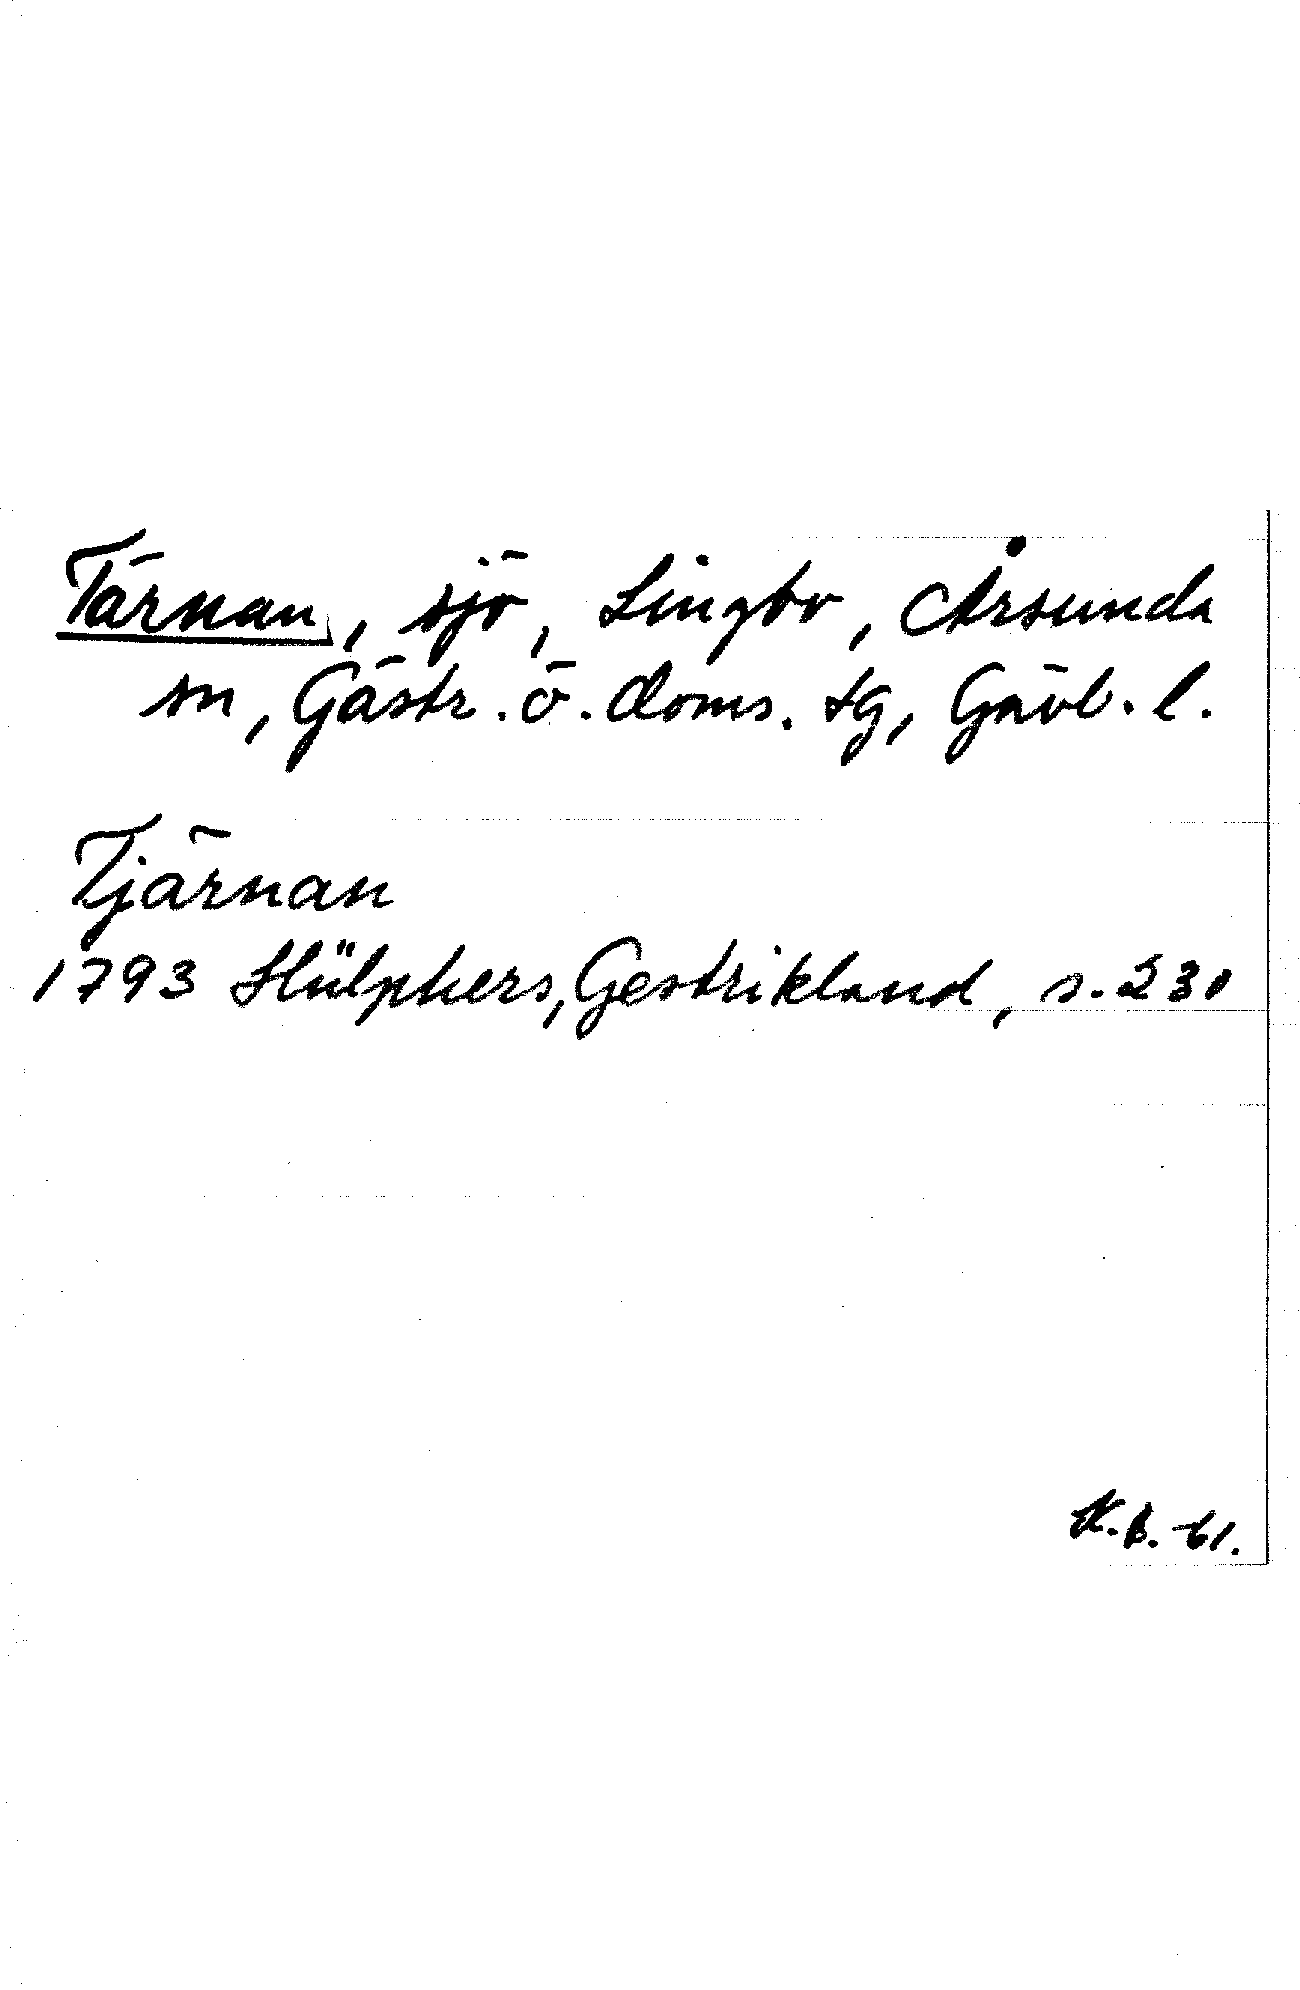 Tärnan, sjö, Lingbo, Årsunda
sn, Gästr. ö. doms. tg, Gävl. l.
Tjärnan
1793 Hülphers, Gestrikland, s. 230
K.B. -61.